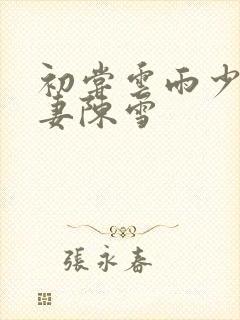 初尝雲雨少
妻陳雪
張永春